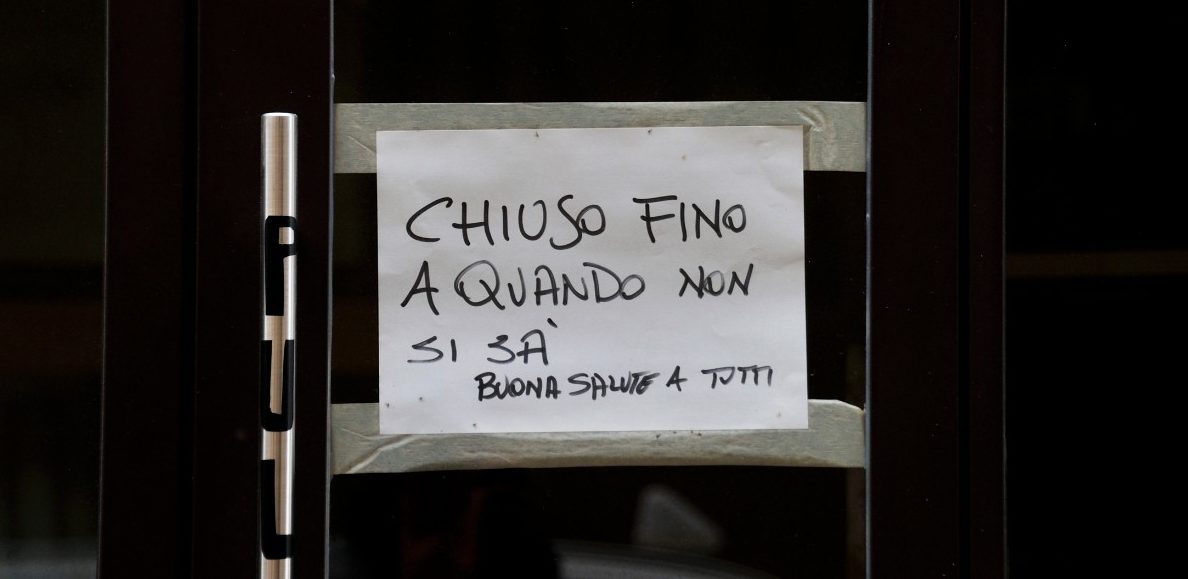 CHIUSO FINO
A QUANDO NON
SI SÀ
BUONA SALUTE A TUTTI